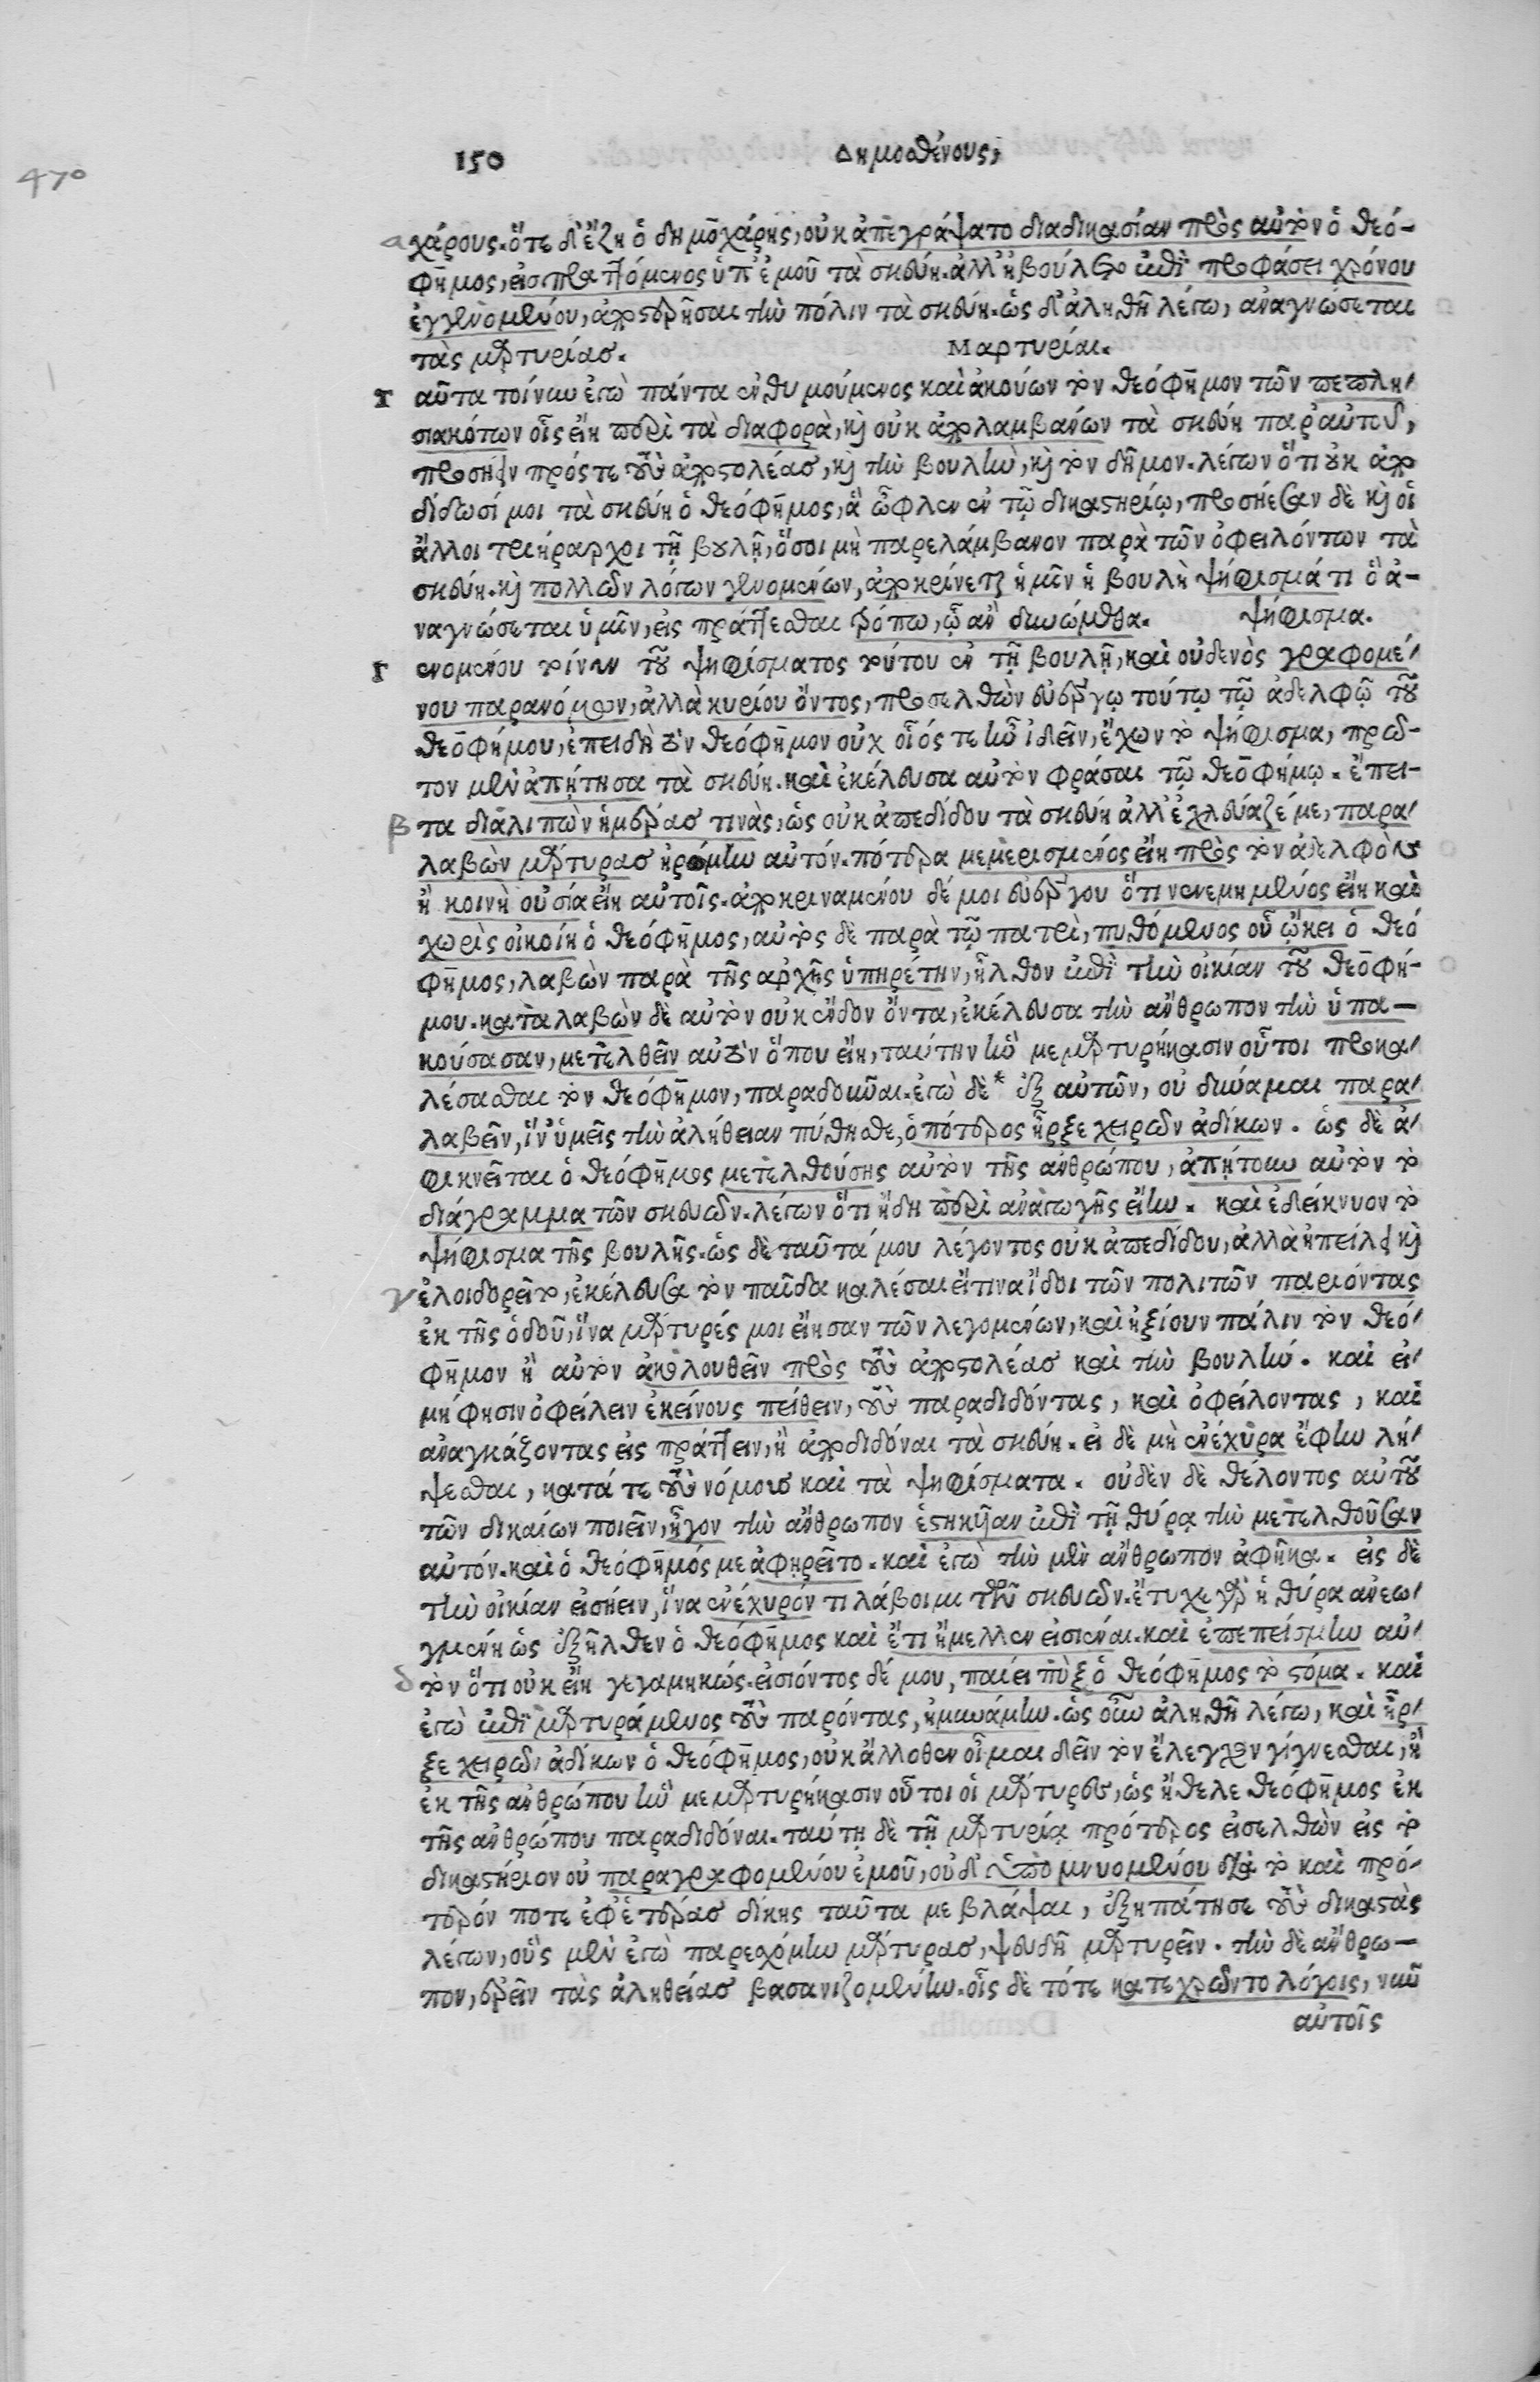 470
150 Δημοσθένους,
α χάρους. ὅτε δ' ἔζη ὁ δημοχάρης, οὐκ ἀπεγράψατο διαδικασίαν πρὸς αὐτὸν ὁ θεό-
φημος, εἰσπραττόμενος ὑπ' ἐμοῦ τὰ σκεύη. ἀλλ' ἠβούλετο ἐπὶ προφάσει χρόνου
ἐγγενομένου, ἀποστερῆσαι τὴν πόλιν τὰ σκεύη. ὡς δ' ἀληθῆ λέγω, ἀναγνώσεται
τὰς μαρτυρίας. Μαρτυρίαι.
Ταῦτα τοίνυν ἐγὼ πάντα ἐνθυμούμενος καὶ ἀκούων τὸν θεόφημον τῶν πεπλη-
σιακότων οἷς εἴη περὶ τὰ διαφορὰ, καὶ οὐκ ἀπολαμβάνων τὰ σκεύη παρ' αὐτοῦ,
προσῄειν πρός τε τοὺς ἀποστολέας, καὶ τὴν βουλὴν, καὶ τὸν δῆμον. λέγων ὅτι οὐκ ἀπο
δίδωσί μοι τὰ σκεύη ὁ θεόφημος, ἃ ὦφλεν ἐν τῷ δικαστηρίῳ, προσῄεσαν δὲ καὶ οἱ
ἄλλοι τριήραρχοι τῇ βουλῇ, ὅσοι μὴ παρελάμβανον παρὰ τῶν ὀφειλόντων τὰ
σκεύη. καὶ πολλῶν λόγων γενομένων, ἀποκρίνεται ἡμῖν ἡ βουλὴ ψηφίσματι ὃ ἀ-
ναγνώσεται ὑμῖν, εἰς πράττεσθαι τρόπῳ, ᾧ ἂν δυνώμεθα. ψήφισμα.
Γενομένου τοίνυν τοῦ ψηφίσματος τούτου ἐν τῇ βουλῇ, καὶ οὐδενὸς γραφομέ-
νου παρανόμων, ἀλλὰ κυρίου ὄντος, προσελθὼν εὐέργῳ τούτῳ τῷ ἀδελφῷ τοῦ
θεοφήμου, ἐπειδὴ τὸν θεόφημον οὐχ οἷός τε ἦν ἰδεῖν, ἔχων τὸ ψήφισμα, πρῶ-
τον μὲν ἀπῄτησα τὰ σκεύη. καὶ ἐκέλευσα αὐτὸν φράσαι τῷ θεοφήμῳ. ἔπει-
β τα διαλιπὼν ἡμέρας τινὰς, ὡς οὐκ ἀπεδίδου τὰ σκεύη ἀλλ' ἐχλεύαζέ με, παρα-
λαβὼν μάρτυρας ἠρόμην αὐτόν. πότερα μεμερισμένος εἴη πρὸς τὸν ἀδελφὸν
ἢ κοινὴ οὐσία εἴη αὐτοῖς. ἀποκριναμένου δέ μοι εὐέργου ὅτι νενεμημένος εἴη καὶ
χωρὶς οἰκοίη ὁ θεόφημος, αὐτὸς δὲ παρὰ τῷ πατρὶ, πυθόμενος οὗ ᾤκει ὁ θεό
φημος, λαβὼν παρὰ τῆς ἀρχῆς ὑπηρέτην, ἦλθον ἐπὶ τὴν οἰκίαν τοῦ θεοφή-
μου. καταλαβὼν δὲ αὐτὸν οὐκ ἔνδον ὄντα, ἐκέλευσα τὴν ἄνθρωπον τὴν ὑπα-
κούσασαν, μετελθεῖν αὐτὸν ὅπου εἴη, ταύτην ἣν μεμαρτυρήκασιν οὗτοι προκα-
λέσασθαι τὸν θεόφημον, παραδοῦναι. ἐγὼ δὲ* ἐξ αὐτῶν, οὐ δύναμαι παρα-
λαβεῖν, ἵν' ὑμεῖς τὴν ἀλήθειαν πύθησθε, ὁπότερος ἦρξε χειρῶν ἀδίκων. ὡς δὲ ἀ-
φικνεῖται ὁ θεόφημος μετελθούσης αὐτὸν τῆς ἀνθρώπου, ἀπῄτουν αὐτὸν τὸ
διάγραμμα τῶν σκευῶν. λέγων ὅτι ἤδη περὶ ἀναγωγῆς εἴην. καὶ ἐδείκνυον τὸ
ψήφισμα τῆς βουλῆς. ὡς δὲ ταῦτά μου λέγοντος οὐκ ἀπεδίδου, ἀλλὰ ἠπείλει καὶ
γ ἐλοιδορεῖτο, ἐκέλευσα τὸν παῖδα καλέσαι εἴ τινα ἴδοι τῶν πολιτῶν παριόντας
ἐκ τῆς ὁδοῦ, ἵνα μάρτυρές μοι εἴησαν τῶν λεγομένων, καὶ ἠξίουν πάλιν τὸν θεό-
φημον ἢ αὐτὸν ἀκολουθεῖν πρὸς τοὺς ἀποστολέας καὶ τὴν βουλήν. καὶ εἰ
μή φησιν ὀφείλειν ἐκείνους πείθειν, τοὺς παραδιδόντας, καὶ ὀφείλοντας, καὶ
ἀναγκάζοντας εἰς πράττειν, ἢ ἀποδιδόναι τὰ σκεύη. εἰ δὲ μὴ ἐνέχυρα ἔφην λή-
ψεσθαι, κατά τε τοὺς νόμους καὶ τὰ ψηφίσματα. οὐδὲν δὲ θέλοντος αὐτοῦ
τῶν δικαίων ποιεῖν, ἦγον τὴν ἄνθρωπον ἑστηκυῖαν ἐπὶ τῇ θύρᾳ τὴν μετελθοῦσαν
αὐτόν. καὶ ὁ θεόφημός με ἀφῃρεῖτο. καὶ ἐγὼ τὴν μὲν ἄνθρωπον ἀφῆκα. εἰς δὲ
τὴν οἰκίαν εἰσῄειν, ἵνα ἐνέχυρόν τι λάβοιμι τῶν σκευῶν. ἔτυχε γὰρ ἡ θύρα ἀνεῳ-
γμένη ὡς ἐξῆλθεν ὁ θεόφημος καὶ ἔτι ἤμελλεν εἰσιέναι. καὶ ἐπεπείσμην αὐ-
δ τὸν ὅτι οὐκ εἴη γεγαμηκώς. εἰσιόντος δέ μου, παίει πὺξ ὁ θεόφημος τὸ στόμα. καὶ
ἐγὼ ἐπιμαρτυράμενος τοὺς παρόντας, ἠμυνάμην. ὡς οὖν ἀληθῆ λέγω, καὶ ἦρ-
ξε χειρῶν ἀδίκων ὁ θεόφημος, οὐκ ἄλλοθεν οἶμαι δεῖν τὸν ἔλεγχον γίγνεσθαι, ἢ
ἐκ τῆς ἀνθρώπου ἣν μεμαρτυρήκασιν οὗτοι οἱ μάρτυρες, ὡς ἤθελε θεόφημος ἐκ
τῆς ἀνθρώπου παραδιδόναι. ταύτῃ δὲ τῇ μαρτυρίᾳ πρότερος εἰσελθὼν εἰς τὸ
δικαστήριον οὐ παραγραφομένου ἐμοῦ, οὐδ' ὑπομνυομένου διὰ τὸ καὶ πρό-
τερόν ποτε ἐφ' ἑτέρας δίκης ταῦτα με βλάψαι, ἐξηπάτησε τοὺς δικαστὰς
λέγων, οὓς μὲν ἐγὼ παρεχόμην μάρτυρας, ψευδῆ μαρτυρεῖν. τὴν δὲ ἄνθρω-
πον, ἐρεῖν τὰς ἀληθείας βασανιζομένην. οἷς δὲ τότε κατεχρῶντο λόγοις, νῦν
αὐτοῖς